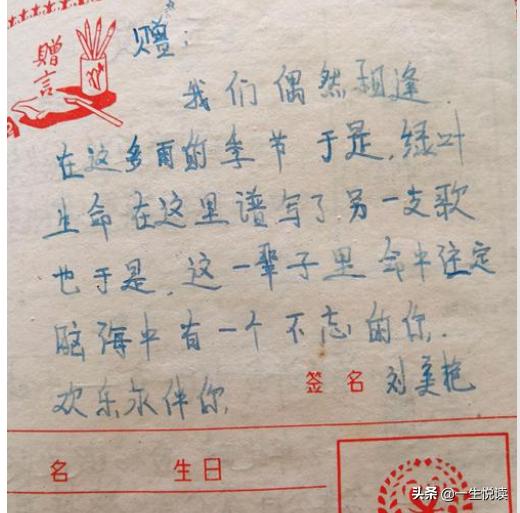 赠言
赠:
我们偶然相逢.
在这多雨的季节 于是,绿叶
生命在这里谱写了另一支歌
也于是,这一辈子里 命中注定
脑海中有一个不忘的你.
欢乐永伴你,
签名 刘美艳
名 生日
头条 @一生悦读